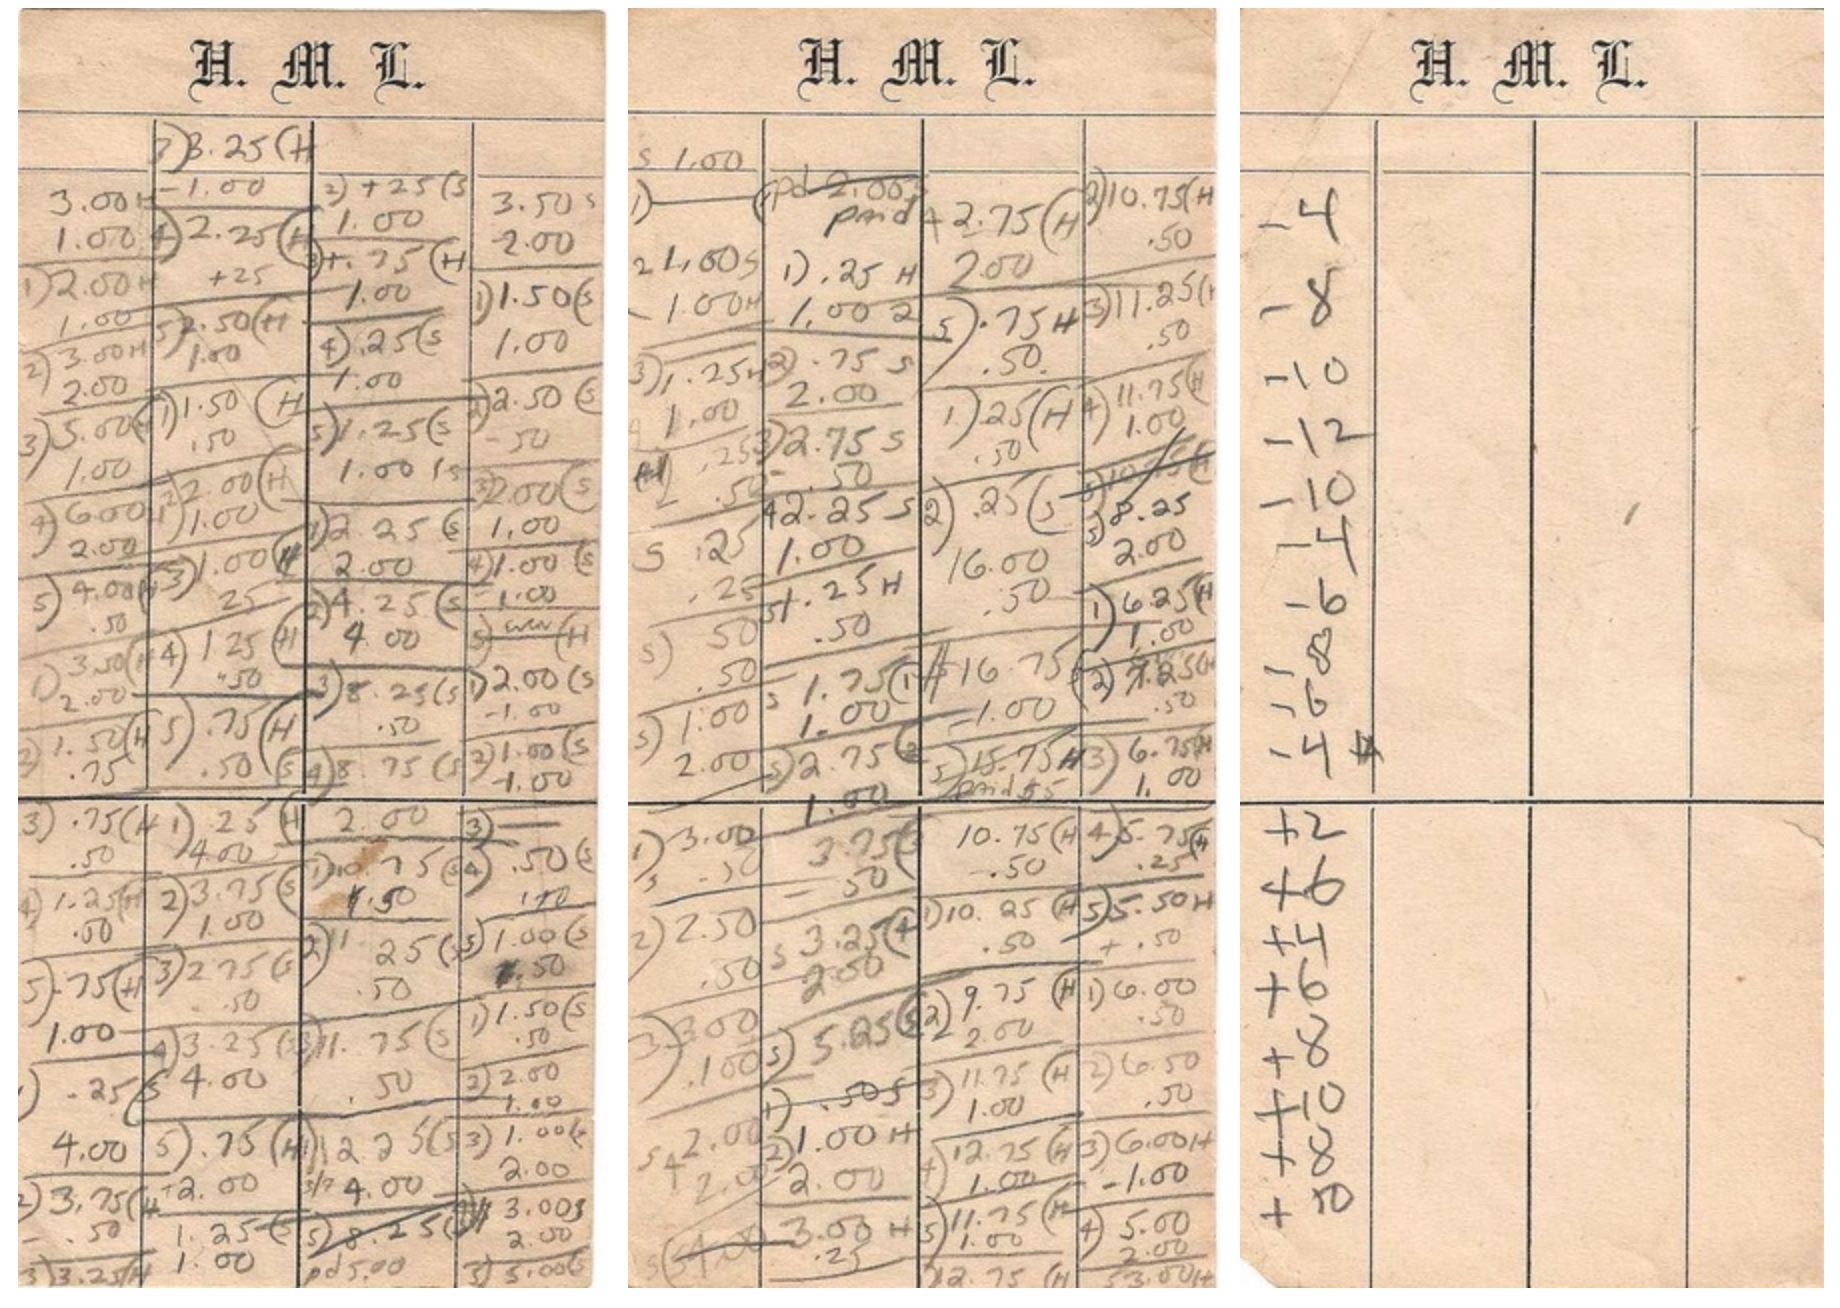 H. M. L.
3.25 (H
-1.00
3.00 H
1.00
4) 2.25 (H
+25
2) +25 (S
1.00
3.50 S
-2.00
1) 2.00 H
1.00
5) 2.50 (H
1.00
3) +.75 (H
1.00
1) 1.50 (S
1.00
2) 3.00 H
2.00
1) 1.50 (H
.50
4) .25 (S
1.00
2) 2.50 (S
-50
3) 5.00 H
1.00
2) 2.00 (H
1.00
5) 1.25 (S
1.00
3) 2.00 (S
1.00
4) 6.00
2.00
3) 1.00 (H
25
1) 2 25 (S
2.00
4) 1.00 (S
-1.00
5) 4.00 H
.50
4) 1 25 (H
.50
2) 4.25 (S
4.00
5) even (H
1) 3.50 (H
2.00
5) .75 (H
.50 (S
3) 8.25 (S
.50
1) 2.00 (S
-1.00
2) 1.50 (H
.75
4) 8 75 (S
2.00
2) 1.00 (S
-1.00
3) .75 (H
.50
1) .25 (H
4.00
1) 10.75 (S
.50
3)
4) .50 (S
4) 1.25 (H
.50
2) 3.75 (S
1.00
2) 11 25 (S
.50
5) 1.00 (S
.50
5) .75 (H
1.00
3) 2 75 (S
.50
3) 11.75 (S
.50
1) 1.50 (S
.50
1) .25 (S
4.00
4) 3.25 (S
4.00
12 25 (S
4.00
2) 2.00
1.00
2) 3.75 (H
.50
5) .75 (H
+2.00
5) 8.25 (S
pd 5.00
3) 1.00 (S
2.00
3) 3.25 (H
1.25 (S
1.00
3.00 S
2.00
5) 5.00 (S
H. M. L.
S 1.00
1)
2 1.00 S
1.00 H
3) 1.25 H
1.00
.25
.50
S .25
.25
5) 50
.50
5) 1.00
2.00
1) 3.00
.50
2) 2.50
.50
3) 3.00
.100
S 4 2.00
2.00
S 4.00
pd 2.00 S
paid
1) .25 H
1.00 2
2) .75 S
2.00
3) 2.75 S
-.50
4 2.25 S
1.00
5 1.25 H
.50
S 1.75 (1
1.00
5) 2.75 (2
1.00
3.75 (3
50
S 3.25 (4
2.00
5) 5.25 (5
1) .50 S
2) 1.00 H
2.00
3.00 H
.25
4 2.75 (H
2.00
5) .75 H
.50
1) .25 (H
.50
2) .25 (S
16.00
.50
16.75
-1.00
5) 15.75 H
paid $5
10.75 (H
-.50
1) 10.25 (H
.50
2) 9.75 (H
2.00
3) 11.75 (H
1.00
4) 12.75 (H
1.00
5) 11.75 (H
1.00
12.75 (H
2) 10.75 (H
.50
3) 11.25 (H
.50
4) 11.75 (H
1.00
5) 10.75 (H
5) 8.25
2.00
1) 6.25 (H
1.00
2) 7.25 (H
.50
3) 6.75 (H
1.00
4) 5.75 (H
.25
5) 5.50 H
+.50
1) 6.00
.50
2) 6.50
.50
3) 6.00 H
-1.00
4) 5.00
2.00
5 3.00 H
H. M. L.
-4
-8
-10
-12
-10
-4
-6
-8
-6
-4
+2
+6
+4
+6
+8
+10
+8
+ 10